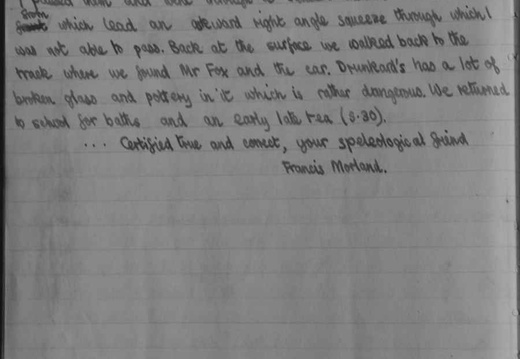 from which lead an akward right angle squeeze through which I
was not able to pass. Back at the surface we walked back to the
track where we found Mr Fox and the car. Drunkard's has a lot of
broken glass and pottery in it which is rather dangerous. We returned
to school for baths and an early late tea (5.30).
... Certified true and correct, your speleological freind
Francis Morland.